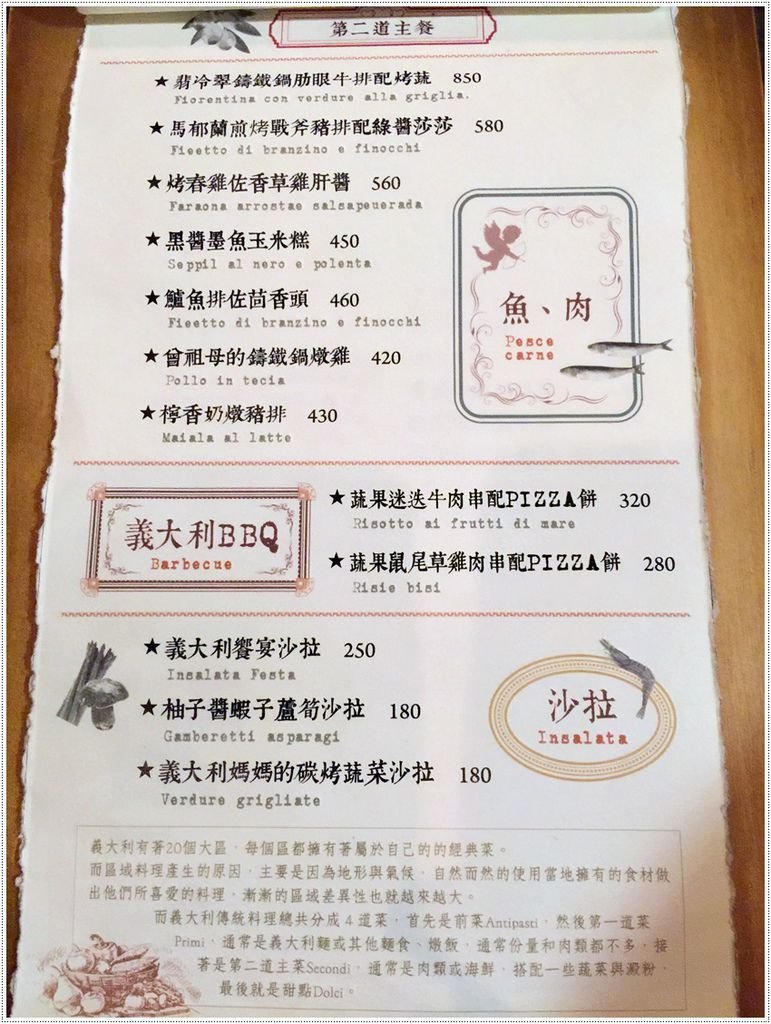 第二道主餐
★翡冷翠鑄鐵鍋肋眼牛排配烤蔬 850
Fiorentina con verdure alla griglia.
★馬郁蘭煎烤戰斧豬排配綠醬莎莎 580
Fieetto di branzino e finocchi
★烤春雞佐香草雞肝醬 560
Faraona arrostae salsapeuerada
★黑醬墨魚玉米糕 450
Seppil al nero e polenta
★鱸魚排佐茴香頭 460
Fieetto di branzino e finocchi
★曾祖母的鑄鐵鍋燉雞 420
Pollo in tecia
★檸香奶燉豬排 430
Maiala al latte
魚、肉
Pesce
carne
義大利BBQ
Barbecue
★蔬果迷迭牛肉串配PIZZA餅 320
Risotto ai frutti di mare
★蔬果鼠尾草雞肉串配PIZZA餅 280
Risie bisi
★義大利饗宴沙拉 250
Insalata Festa
★柚子醬蝦子蘆筍沙拉 180
Gamberetti asparagi
★義大利媽媽的碳烤蔬菜沙拉 180
Verdure grigliate
沙拉
Insalata
義大利有著20個大區，每個區都擁有著屬於自己的的經典菜。
而區域料理產生的原因，主要是因為地形與氣候，自然而然的使用當地擁有的食材做
出他們所喜愛的料理，漸漸的區域差異性也就越來越大。
而義大利傳統料理總共分成 4 道菜，首先是前菜Antipasti，然後第一道菜
Primi，通常是義大利麵或其他麵食、燉飯，通常份量和肉類都不多，接
著是第二道主菜Secondi，通常是肉類或海鮮，搭配一些蔬菜與澱粉，
最後就是甜點Dolci。